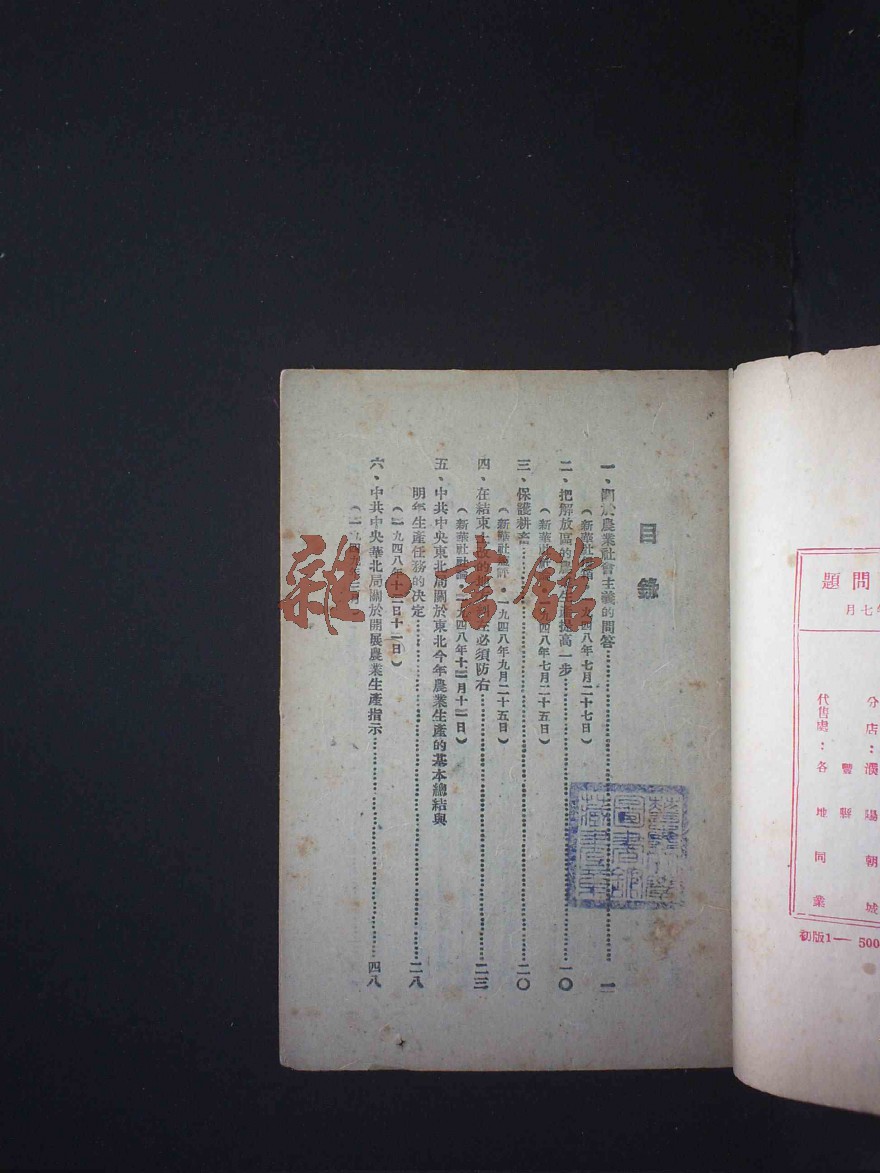 題問
月七年
分店：濮陽朝城
豐縣
代售處：各地同業
初版1—500
目錄
一、關於農業社會主義的問答……一
（新華社信箱・一九四八年七月二十七日）
二、把解放區的農業生產提高一步……一〇
（新華社社論・一九四八年七月二十五日）
三、保護耕畜……二〇
（新華社短評・一九四八年九月二十五日）
四、在結束土改的地區
必須防右……二三
（新華社社論・一九四八年十二月十二日）
五、中共中央東北局關於東北今年農業生產的基本總結與
明年生產任務的决定……二八
（一九四八年十二日十二日）
六、中共中央華北局關於開展農業生產指示……四八
（一九四九年
雜・書館
圖書館
藏書章